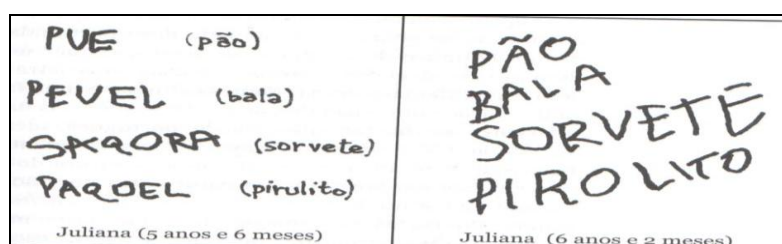 PUE (pão)
PEVEL (bala)
SAQORA (sorvete)
PAQOEL (pirulito)
Juliana (5 anos e 6 meses)
PÃO
BALA
SORVETE
PIROLITO
Juliana (6 anos e 2 meses)